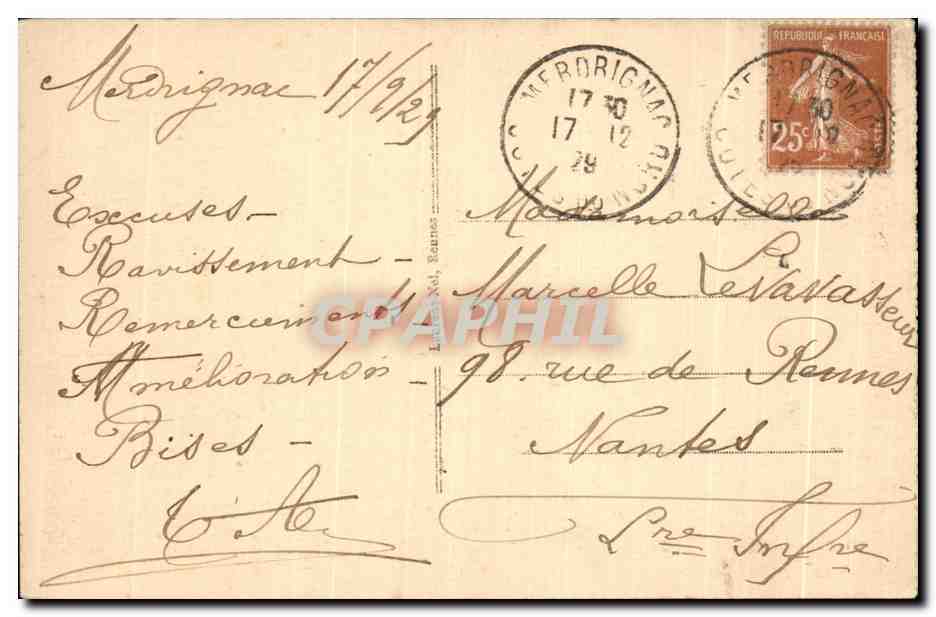 Merdrignac 17/9/29
Excuses -
Ravissement -
Remerciements -
Amélioration -
Bises -
Nel, Rennes
MERDRIGNAC
17 30
17 12
29
COTES DU NORD
REPUBLIQUE FRANCAISE
25c
MERDRIGNAC
17 30
17 12
Mademoiselle
Marcelle Levavasseur
98. rue de Rennes
Nantes
Lre Infre
CPAPHIL